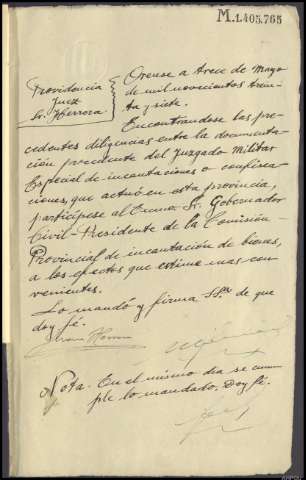 M.1.405.765
Providencia
Juez
Sr. Herrera
Orense a trece de Mayo
de mil novecientos trein-
ta y siete.
Encontrandose las pre-
cedentes diligencias entre la documenta-
ción procedente del Juzgado Militar
Especial de incautaciones o confisca-
ciones, que actuó en esta provincia,
participese al Excmo. Sr. Gobernador
Civil-Presidente de la Comisión
Provincial de incautación de bienes,
a los efectos que estime mas con-
venientes.
Lo mandó y firma SSª. de que
doy fé.
Nota. En el mismo dia se cum-
ple lo mandado. Doy fé.